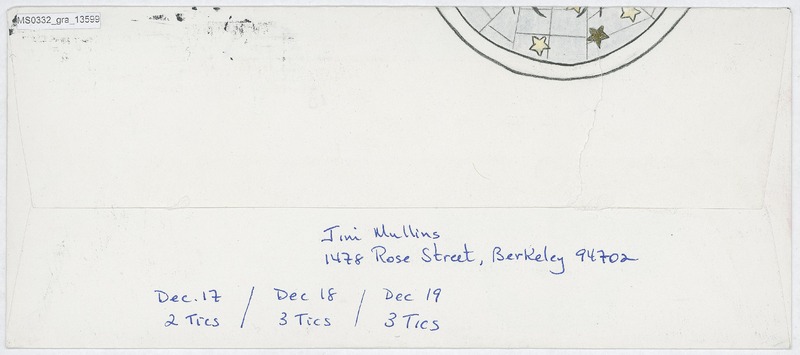 MS0332_gra_13599
Jim Mullins
1478 Rose Street, Berkeley 94702
Dec. 17 / Dec 18 / Dec 19
2 Tics / 3 Tics / 3 Tics